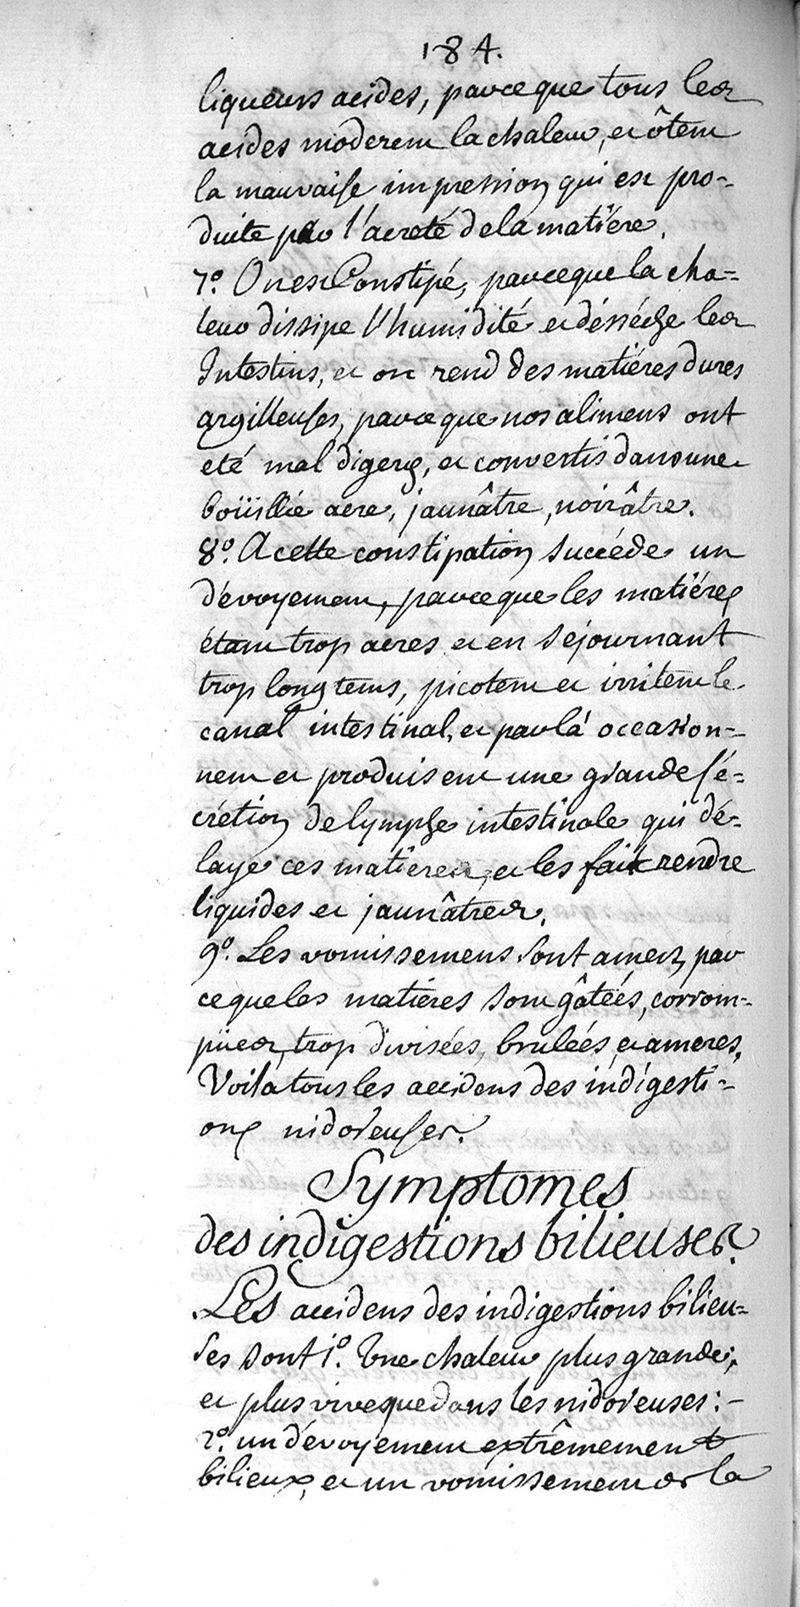 184.
liqueurs acides, parceque tous les
acides moderent la chaleur, et ôtent
la mauvaise impression qui est pro-
duite par l'acreté de la matiére.
7.° On est Constipé, parceque la cha=
leur dissipe l'humidité et désséche les
Intestins, et on rend des matiéres dures
argilleuses, parceque nos alimens ont
eté mal digerés, et convertis dans une
boüillie acre, jaunâtre, noirâtre.
8.° A cette constipation succéde un
dévoyement, parceque les matiéres
étant trop acres et en séjournant
trop longtems, picotent et irritent le
canal intestinal, et par là occasion-
nent et produisent une grande sé=
crétion de lymphe intestinale qui dé-
laye ces matieres, et les fait rendre
liquides et jaunâtres.
9.° Les vomissemens sont amers, par
ceque les matiéres sont gâtéés, corrom=
püees, trop divisées, brulées, et ameres.
Voila tous les accidens des indigesti-
ons nidoreuses.
Symptomes
des indigestions bilieuses.
Les accidens des indigestions bilieu=
ses sont 1.° Une chaleur plus grande,
et plus vive que dans les nidoreuses: -
2.° un dévoyement extrêmement
bilieux, et un vomissement de la